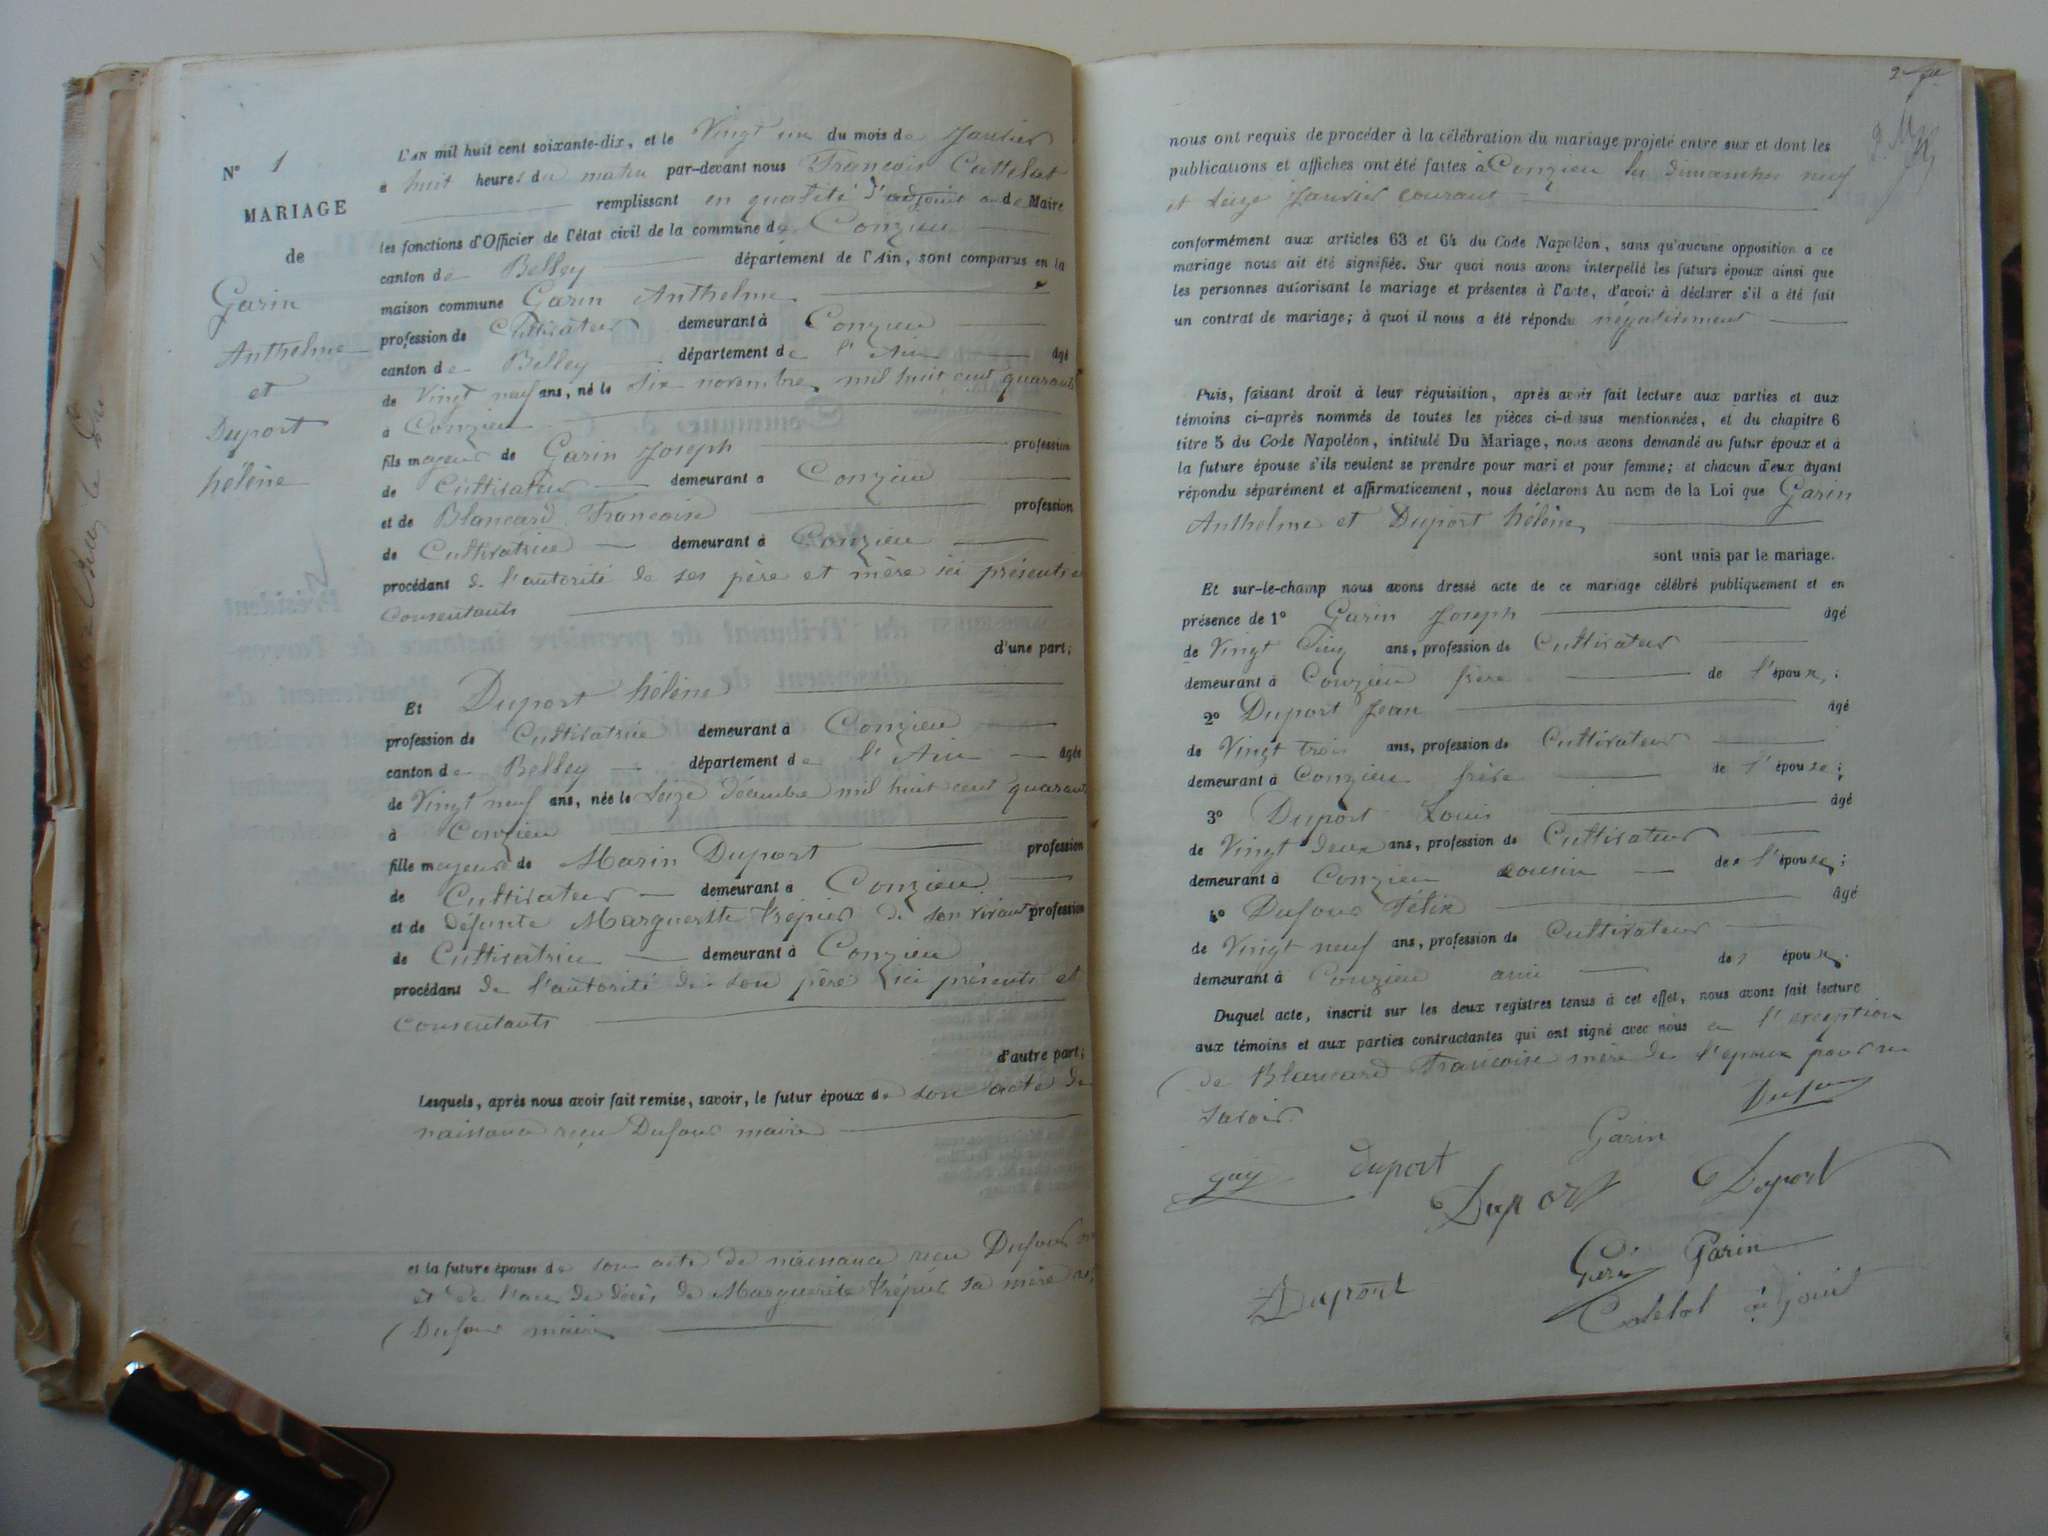 N° 1
MARIAGE
de
Garin
Anthelme
et
Duport
hélène
L'AN mil huit cent soixante-dix, et le Vingt un du mois de Janvier
à huit heures du matin par-devant nous François Cattelat
remplissant en qualité d'adjoint au de Maire
les fonctions d'Officier de l'état civil de la commune de Conzieu
canton de Belley département de l'Ain, sont comparus en la
maison commune Garin Anthelme
profession de Cultivateur demeurant à Conzieu
canton de Belley département de l'Ain âgé
de Vingt neuf ans, né le six novembre mil huit cent quarante
à Conzieu
fils majeur de Garin Joseph profession
de Cultivateur demeurant à Conzieu
et de Blancard Françoise profession
de Cultivatrice demeurant à Conzieu
procédant de l'autorité de ses père et mère ici présents et
Consentants
d'une part;
Et Duport hélène
profession de Cultivatrice demeurant à Conzieu
canton de Belley département de l'Ain âgée
de Vingt neuf ans, née le Seize décembre mil huit cent quarante
à Conzieu
fille majeure de Marin Duport profession
de Cultivateur demeurant à Conzieu
et de défunte Marguerite trépier de son vivant profession
de Cultivatrice demeurant à Conzieu
procédant de l'autorité de son père ici présents et
Consentants
d'autre part;
Lesquels, après nous avoir fait remise, savoir, le futur époux de son acte de
naissance reçu Dufour maire
et la future épouse de son acte de naissance reçu Dufour
et de l'acte de décès de Marguerite trépier sa mère
Dufour maire
2
nous ont requis de procéder à la célébration du mariage projeté entre eux et dont les
publications et affiches ont été faites à Conzieu les dimanches neuf
et Seize Janvier courant
conformément aux articles 63 et 64 du Code Napoléon, sans qu'aucune opposition à ce
mariage nous ait été signifiée. Sur quoi nous avons interpellé les futurs époux ainsi que
les personnes autorisant le mariage et présentes à l'acte, d'avoir à déclarer s'il a été fait
un contrat de mariage; à quoi il nous a été répondu négativement
Puis, faisant droit à leur réquisition, après avoir fait lecture aux parties et aux
témoins ci-après nommés de toutes les pièces ci-dessus mentionnées, et du chapitre 6
titre 5 du Code Napoléon, intitulé Du Mariage, nous avons demandé au futur époux et à
la future épouse s'ils veulent se prendre pour mari et pour femme; et chacun d'eux ayant
répondu séparément et affirmativement, nous déclarons Au nom de la Loi que Garin
Anthelme et Duport hélène
sont unis par le mariage.
Et sur-le-champ nous avons dressé acte de ce mariage célébré publiquement et en
présence de 1° Garin Joseph âgé
de Vingt Cinq ans, profession de Cultivateur
demeurant à Conzieu frère de l'époux;
2° Duport Jean âgé
de Vingt trois ans, profession de Cultivateur
demeurant à Conzieu frère de l'épouse;
3° Duport Louis âgé
de Vingt deux ans, profession de Cultivateur
demeurant à Conzieu cousin de l'épouse;
4° Dufour Félix âgé
de Vingt neuf ans, profession de Cultivateur
demeurant à Conzieu ami de époux.
Duquel acte, inscrit sur les deux registres tenus à cet effet, nous avons fait lecture
aux témoins et aux parties contractantes qui ont signé avec nous à l'exception
de Blancard Françoise mère de l'époux pour ne
savoir.
Garin
duport
Duport
Duport
Garin
Duport
adjoint